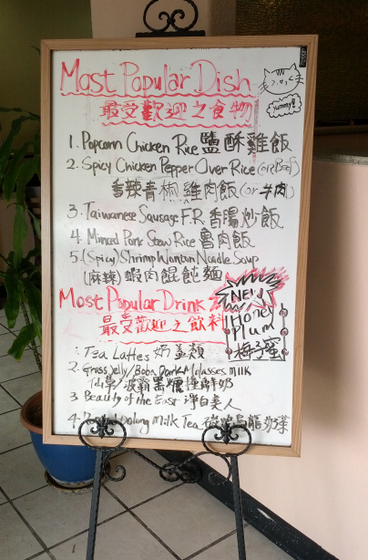 Most Popular Dish
最受歡迎之食物
yummy!!
1. Popcorn Chicken Rice 鹽酥雞飯
2. Spicy Chicken Pepper Over Rice (or Beef)
香辣青椒雞肉飯 (or 牛肉)
3. Taiwanese Sausage F.R. 香腸炒飯
4. Minced Pork Stew Rice 魯肉飯
5. (Spicy) Shrimp Wonton Noodle Soup
(麻辣) 蝦肉餛飩麵
Most Popular Drink
最受歡迎之飲料
NEW!
Honey
Plum
梅子蜜
1. Tea Lattes 奶蓋類
2. Grass Jelly/Boba Dark Molasses milk
仙草/波霸黑糖鮮奶
3 Beauty of the East 淨白美人
4. Oolong Milk Tea 烏龍奶茶